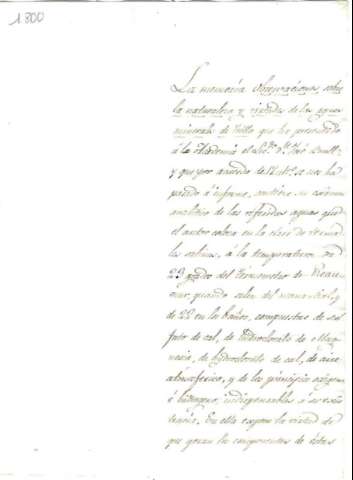 1800
La memoria Observaciones sobre
la naturaleza y virtudes de las aguas
minerales de Trillo que ha presentado
á la Academia el Sor. Dn. José
y que por acuerdo de se nos ha
pasado á informe, contiene un exámen
analitico de las referidas aguas que
el autor coloca en la clase de
les salinas, á la temperatura de
23 grados del Termometro de Reau
mur quando salen del manantial, y
de 22 en los baños, compuestas de sul
fato de cal, de hidroclorato de Mag
nesia, de hydroclorato de cal, de aire
atmosferico, y de los principios oxigeno
é hidrogeno, indispensables á su exis
tencia. En ella expone la virtud de
que gozan los componentes de estas